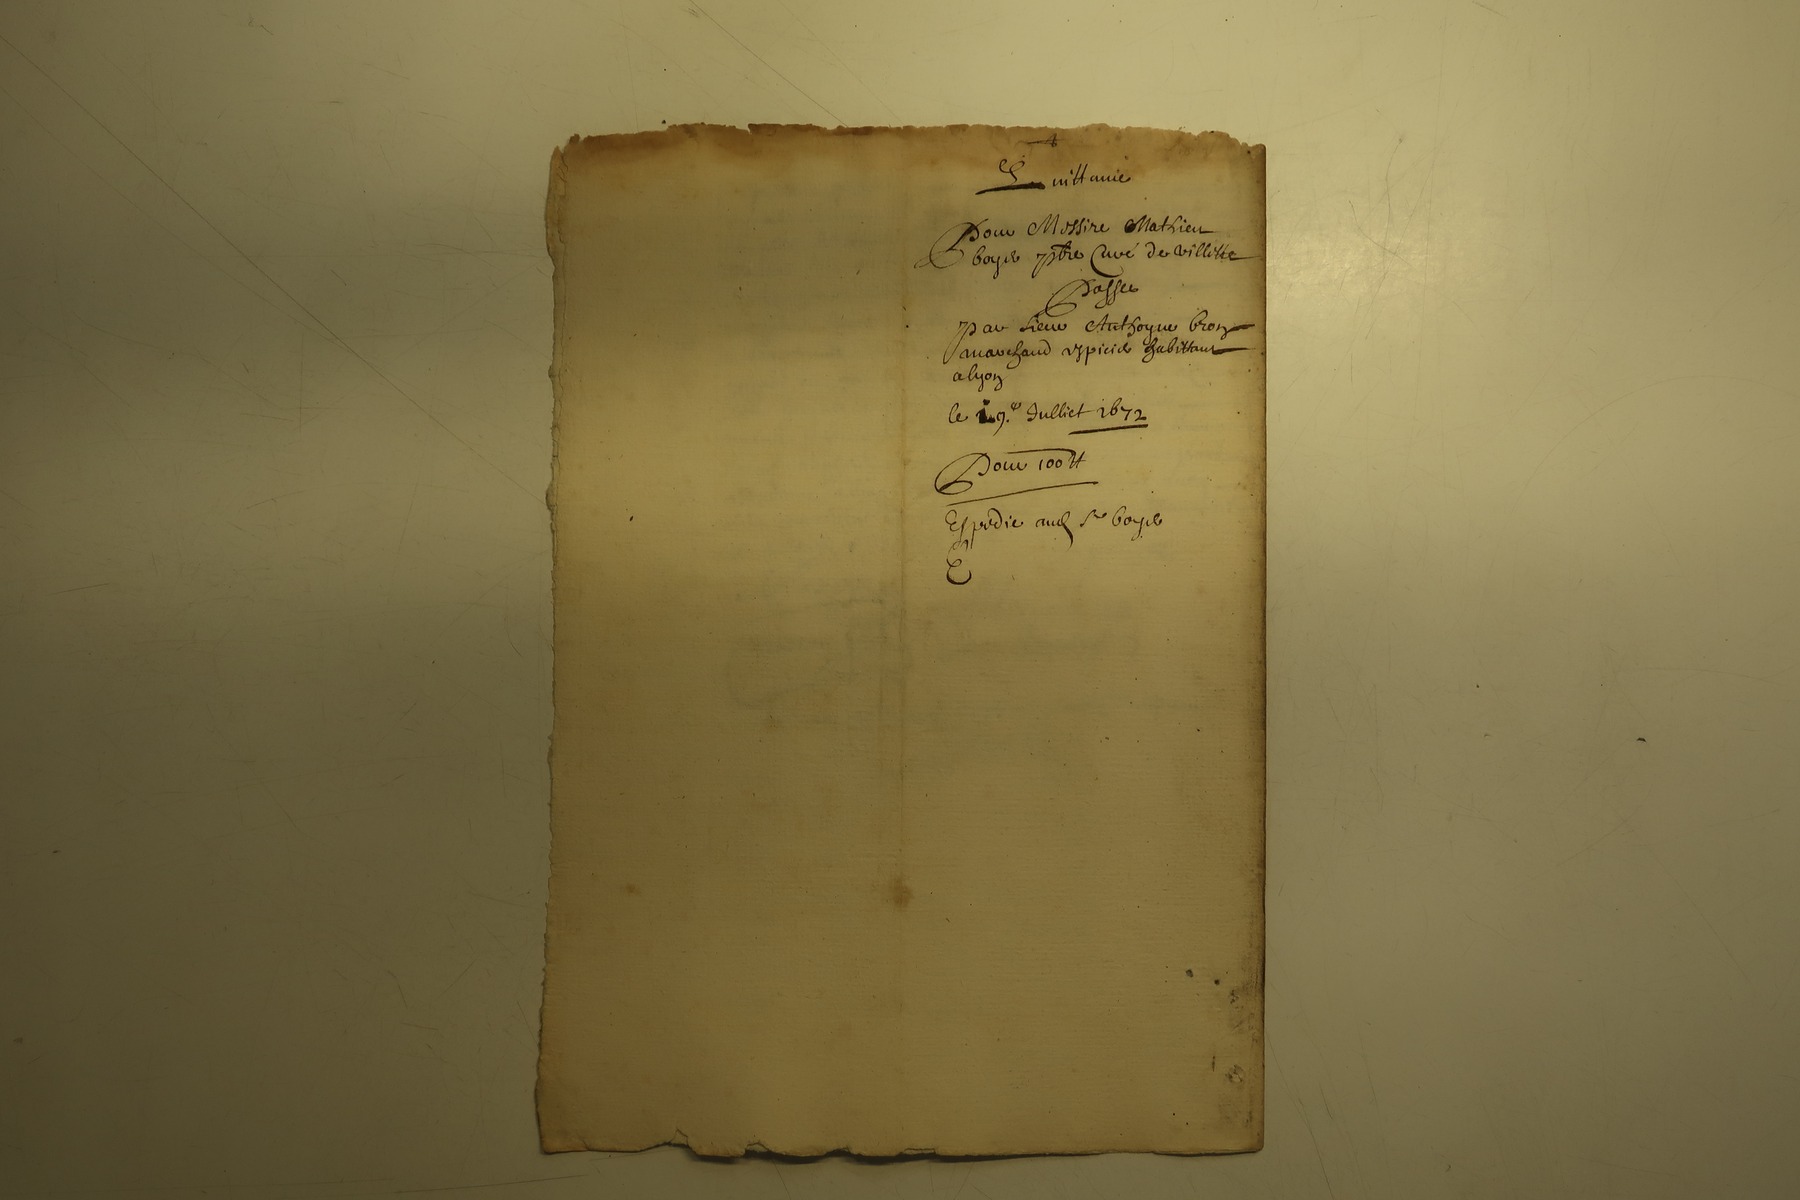 Quittance
Pour Messire Mathieu
boyer ptre Curé de villette
Passee
par sieur Anthoyne bron
marchand espicier habittant
a lyon
le 19.e Julliet 1672
Pour 100 ₶
Expedie aud Sr boyer